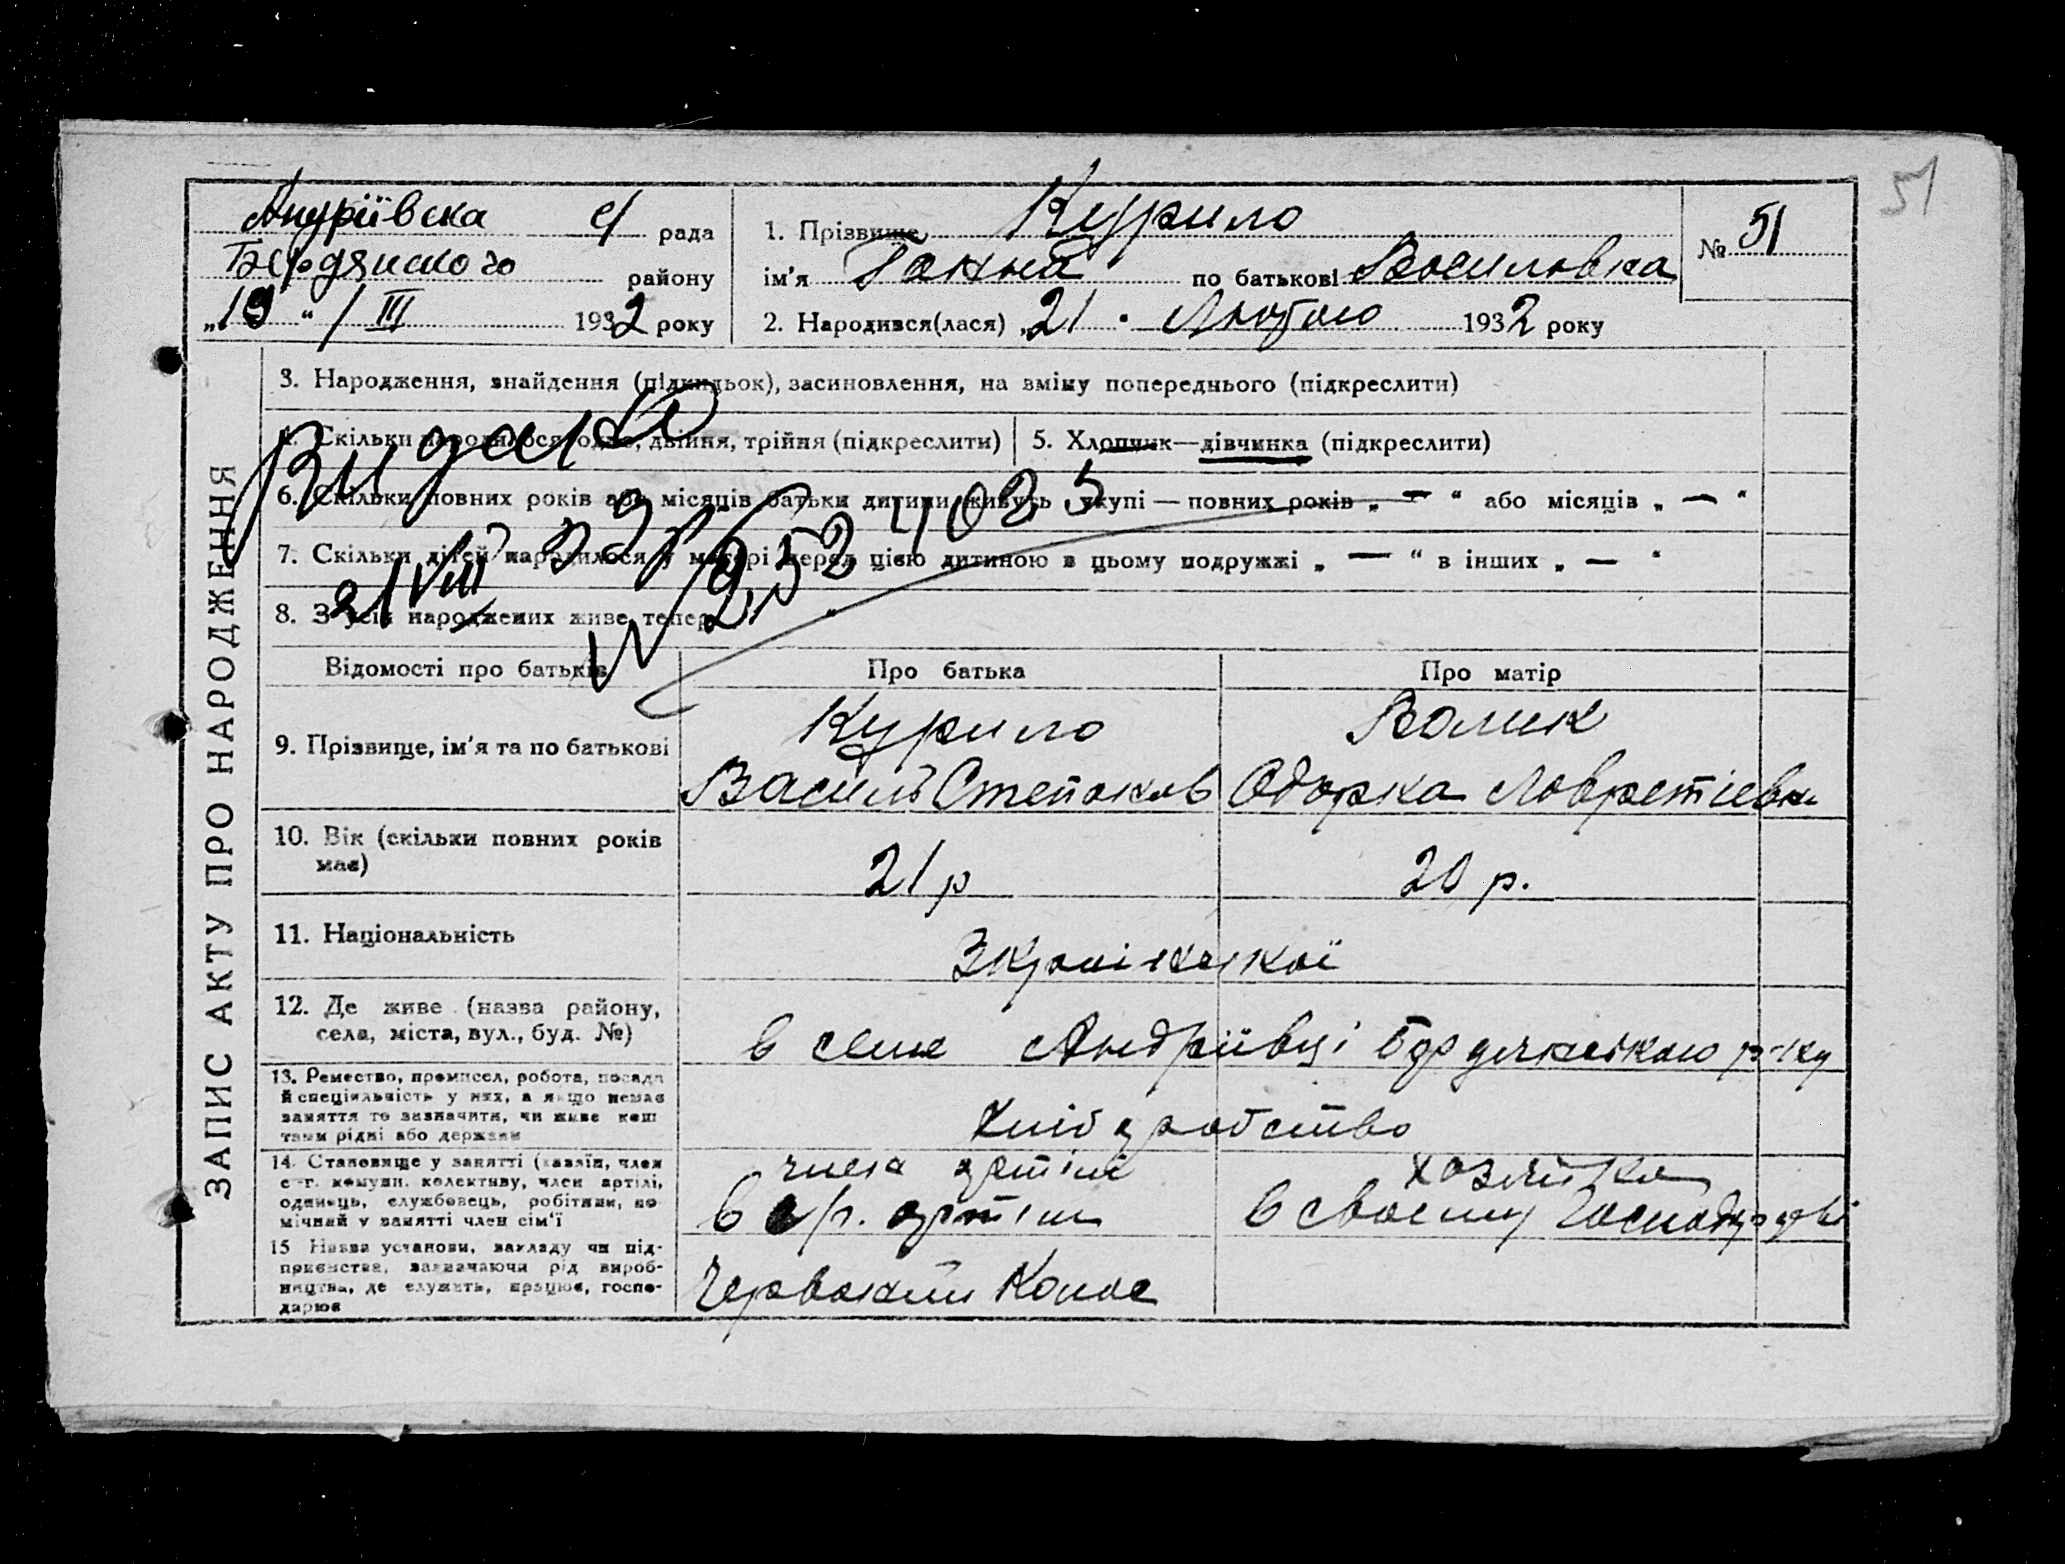 51
Андріївска с/ рада
Бердянского району
„19“ / III 1932 року
1. Прізвище Курило
ім'я Ганна по батькові Василовка
2. Народився(лася) „21 . Лютого 1932 року
№ 51
ЗАПИС АКТУ ПРО НАРОДЖЕННЯ
3. Народження, знайдення (підкидьок), засиновлення, на зміну попереднього (підкреслити)
4. Скільки народилося: одно, двійня, трійня (підкреслити)
5. Хлопчик—дівчинка (підкреслити)
6. Скільки повних років або місяців батьки дитини живуть укупі — повних років „ — “ або місяців „ — “
7. Скільки дітей народилося у матері перед цією дитиною в цьому подружжі „ — “ в інших „ — “
8. З усіх народжених живе тепер
Видано
21/VIII
Відомості про батьків
Про батька
Про матір
9. Прізвище, ім'я та по батькові
Курило
Василь Степанов
Волик
Одарка Лаврентіевка
10. Вік (скільки повних років має)
21 р
20 р.
11. Національність
Української
12. Де живе (назва району,
села, міста, вул., буд. №)
в селе Андріівці Бердянського р-ну
13. Ремество, промисел, робота, посада
й спеціяльність у них, а якщо немає
заняття то зазначити, чи живе кош
тами рідні або держави
хліборобство
14. Становище у занятті (хазяїн, член
с-г. комуни, колективу, член артілі,
одинець, службовець, робітник, по
мічний у занятті член сім'ї
член артілі
в с/г. артіли
хозяйка
в своєму господарстві
15 Назва установи, закладу чи під-
приємства, зазначаючи рід вироб-
ництва, де служить, працює, госпо-
дарює
Червоний Колос